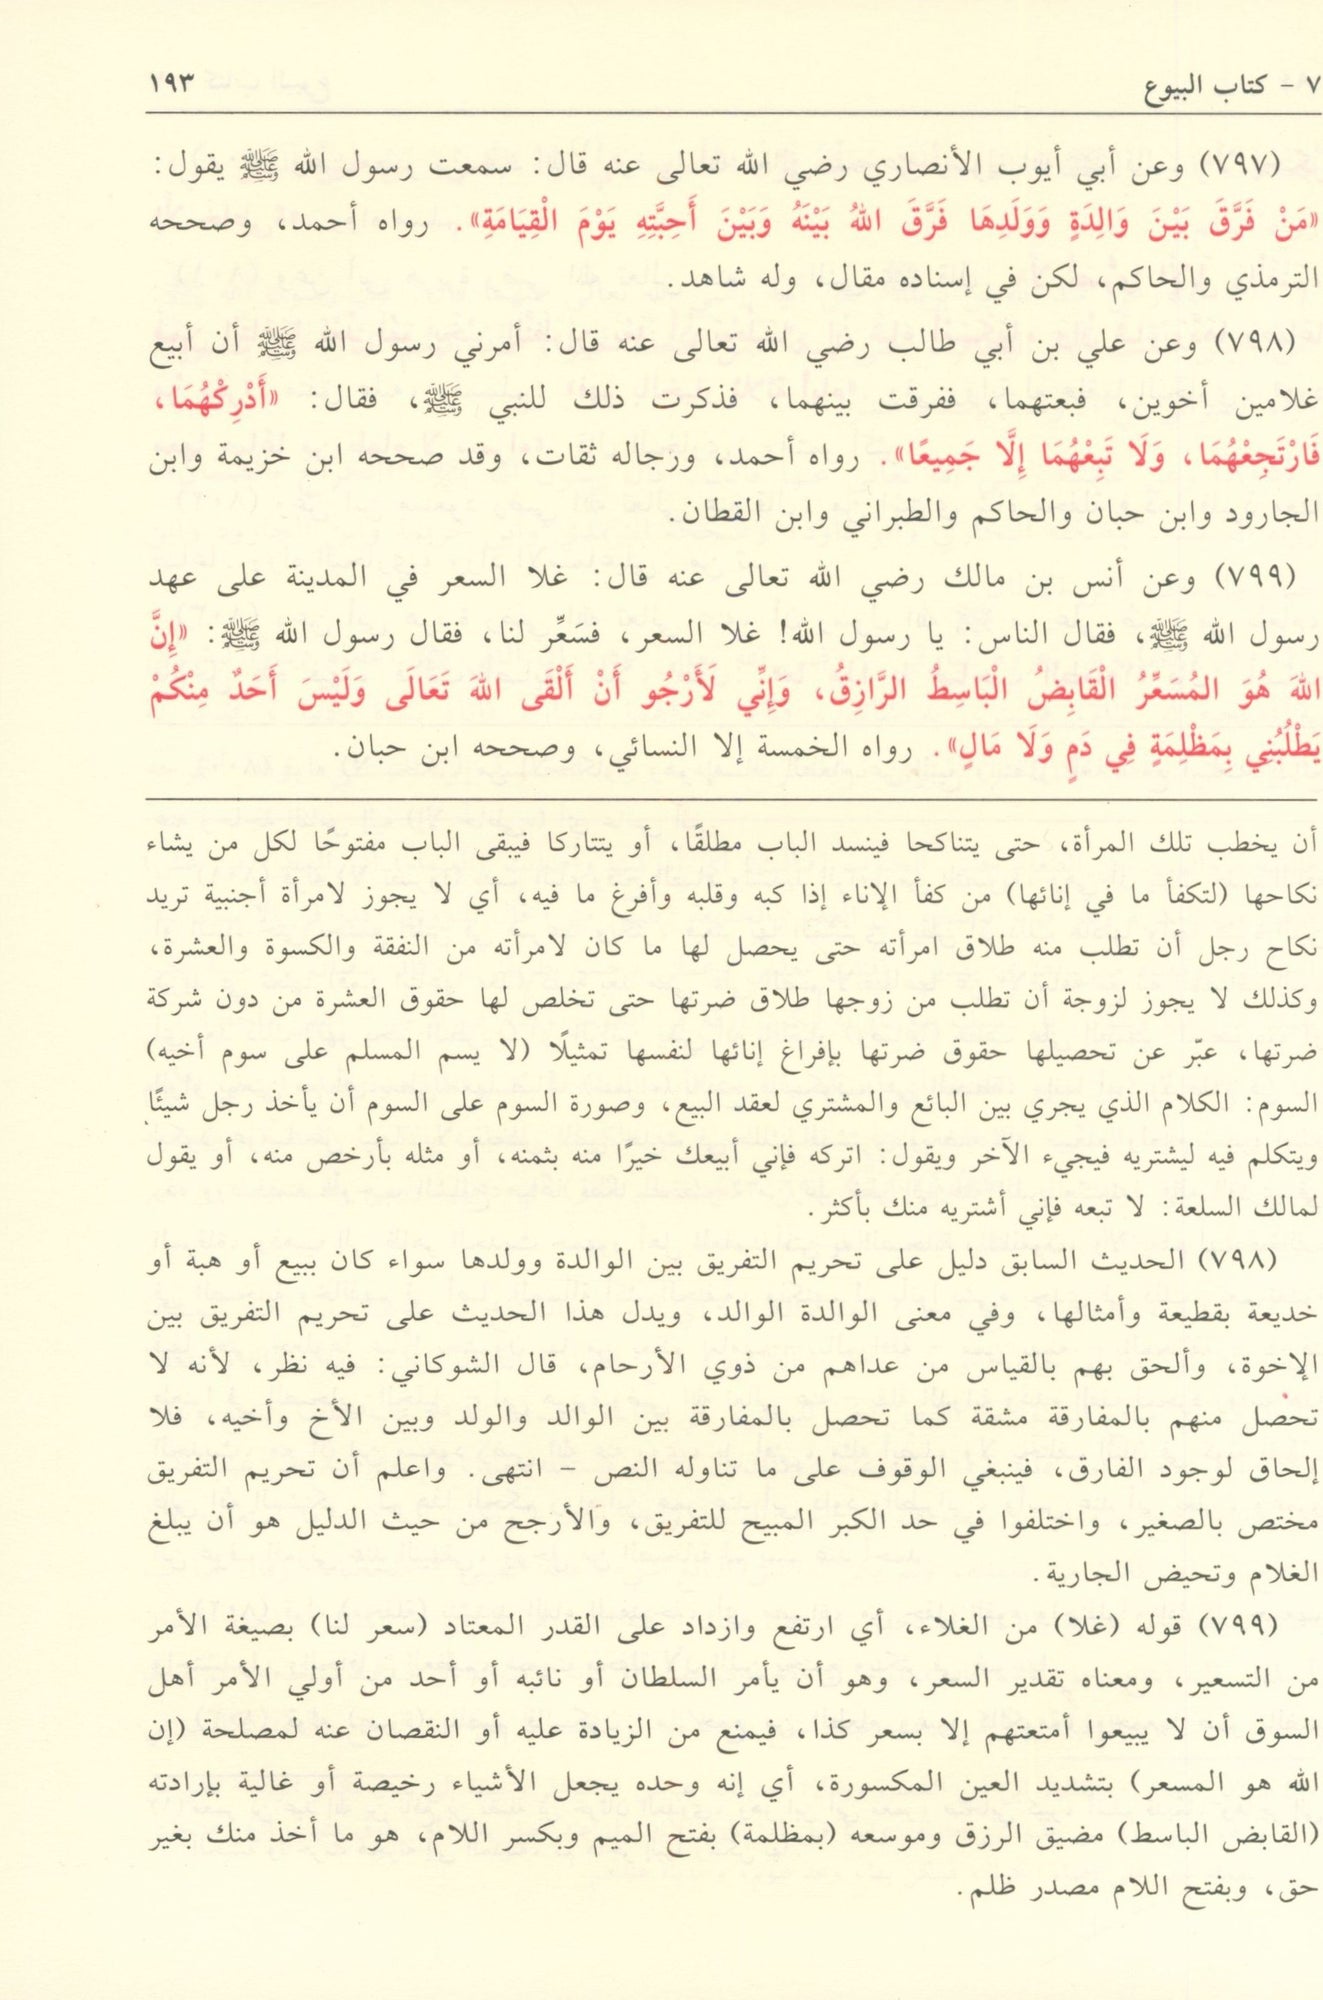 ٧ - كتاب البيوع ١٩٣
(٧٩٧) وعن أبي أيوب الأنصاري رضي الله تعالى عنه قال: سمعت رسول الله ﷺ يقول:
«مَنْ فَرَّقَ بَيْنَ وَالِدَةٍ وَوَلَدِهَا فَرَّقَ اللهُ بَيْنَهُ وَبَيْنَ أَحِبَّتِهِ يَوْمَ الْقِيَامَةِ». رواه أحمد، وصححه
الترمذي والحاكم، لكن في إسناده مقال، وله شاهد.
(٧٩٨) وعن علي بن أبي طالب رضي الله تعالى عنه قال: أمرني رسول الله ﷺ أن أبيع
غلامين أخوين، فبعتهما، ففرقت بينهما، فذكرت ذلك للنبي ﷺ، فقال: «أَدْرِكْهُمَا،
فَارْتَجِعْهُمَا، وَلَا تَبِعْهُمَا إِلَّا جَمِيعًا». رواه أحمد، ورجاله ثقات، وقد صححه ابن خزيمة وابن
الجارود وابن حبان والحاكم والطبراني وابن القطان.
(٧٩٩) وعن أنس بن مالك رضي الله تعالى عنه قال: غلا السعر في المدينة على عهد
رسول الله ﷺ، فقال الناس: يا رسول الله! غلا السعر، فسَعِّر لنا، فقال رسول الله ﷺ: «إِنَّ
اللهَ هُوَ المُسَعِّرُ الْقَابِضُ الْبَاسِطُ الرَّازِقُ، وَإِنِّي لَأَرْجُو أَنْ أَلْقَى اللهَ تَعَالَى وَلَيْسَ أَحَدٌ مِنْكُمْ
يَطْلُبُنِي بِمَظْلِمَةٍ فِي دَمٍ وَلَا مَالٍ». رواه الخمسة إلا النسائي، وصححه ابن حبان.
أن يخطب تلك المرأة، حتى يتناكحا فينسد الباب مطلقًا، أو يتتاركا فيبقى الباب مفتوحًا لكل من يشاء
نكاحها (لتكفأ ما في إنائها) من كفأ الإناء إذا كبه وقلبه وأفرغ ما فيه، أي لا يجوز لامرأة أجنبية تريد
نكاح رجل أن تطلب منه طلاق امرأته حتى يحصل لها ما كان لامرأته من النفقة والكسوة والعشرة،
وكذلك لا يجوز لزوجة أن تطلب من زوجها طلاق ضرتها حتى تخلص لها حقوق العشرة من دون شركة
ضرتها، عبّر عن تحصيلها حقوق ضرتها بإفراغ إنائها لنفسها تمثيلًا (لا يسم المسلم على سوم أخيه)
السوم: الكلام الذي يجري بين البائع والمشتري لعقد البيع، وصورة السوم على السوم أن يأخذ رجل شيئًا
ويتكلم فيه ليشتريه فيجيء الآخر ويقول: اتركه فإني أبيعك خيرًا منه بثمنه، أو مثله بأرخص منه، أو يقول
لمالك السلعة: لا تبعه فإني أشتريه منك بأكثر.
(٧٩٨) الحديث السابق دليل على تحريم التفريق بين الوالدة وولدها سواء كان ببيع أو هبة أو
خديعة بقطيعة وأمثالها، وفي معنى الوالدة الوالد، ويدل هذا الحديث على تحريم التفريق بين
الإخوة، وألحق بهم بالقياس من عداهم من ذوي الأرحام، قال الشوكاني: فيه نظر، لأنه لا
تحصل منهم بالمفارقة مشقة كما تحصل بالمفارقة بين الوالد والولد وبين الأخ وأخيه، فلا
إلحاق لوجود الفارق، فينبغي الوقوف على ما تناوله النص - انتهى. واعلم أن تحريم التفريق
مختص بالصغير، واختلفوا في حد الكبر المبيح للتفريق، والأرجح من حيث الدليل هو أن يبلغ
الغلام وتحيض الجارية.
(٧٩٩) قوله (غلا) من الغلاء، أي ارتفع وازداد على القدر المعتاد (سعر لنا) بصيغة الأمر
من التسعير، ومعناه تقدير السعر، وهو أن يأمر السلطان أو نائبه أو أحد من أولي الأمر أهل
السوق أن لا يبيعوا أمتعتهم إلا بسعر كذا، فيمنع من الزيادة عليه أو النقصان عنه لمصلحة (إن
الله هو المسعر) بتشديد العين المكسورة، أي إنه وحده يجعل الأشياء رخيصة أو غالية بإرادته
(القابض الباسط) مضيق الرزق وموسعه (بمظلمة) بفتح الميم وبكسر اللام، هو ما أخذ منك بغير
حق، وبفتح اللام مصدر ظلم.